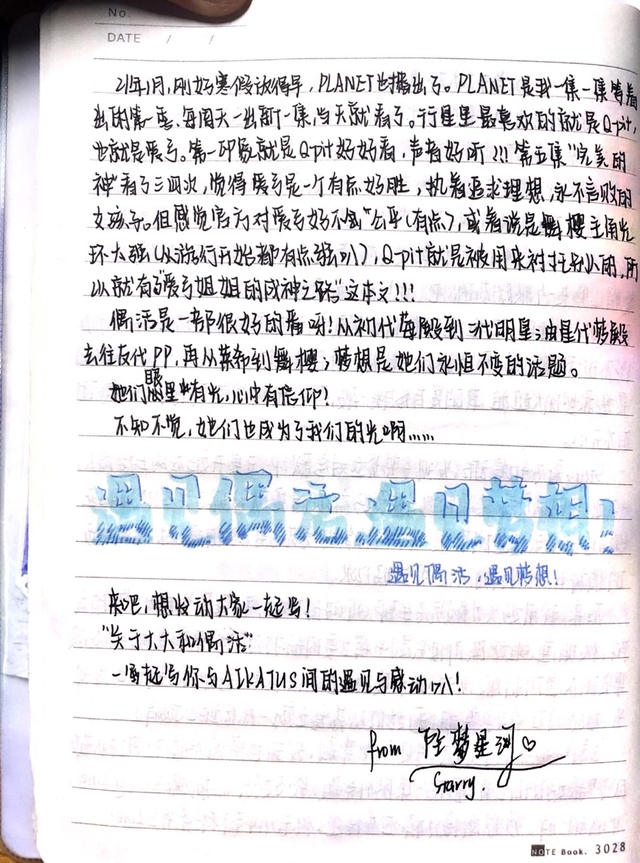 No.
DATE / /
21年1月,刚好寒假放得早,PLANET也播出了。PLANET是我一集一集等着
出的第一季、每周天一出新一集,当天就看了。行星里最喜欢的就是Q-pit,
也就是爱弓。第一印象就是Q-pit好好看,声音好听!!!第五集"完美的
神"看了三四次,觉得爱弓是一个有点好胜,执着追求理想,永不言败的
女孩子。但感觉官方对爱弓好不公平(有点),或者说是舞樱主角光
环太强(从游行开始都有点强叭),Q-pit就是被用来衬托别人的,所
以就有了"爱弓姐姐的成神之路"这本文!!!
偶活是一部很好的番呀!从初代莓殿到二代明星;由星代梦殿
去往友代PP,再从茉希到舞樱;梦想是她们永恒不变的话题。
她们眼里有光,心中有信仰!
不知不觉,她们也成为了我们的光啊……
遇见偶活 遇见梦想!
遇见偶活,遇见梦想!
来吧,想发动大家一起写!
"关于太太和偶活"
一起写你与AIKATUS间的遇见与感动叭!
from 陆梦星河♡
Starry.
NOTE Book. 3028